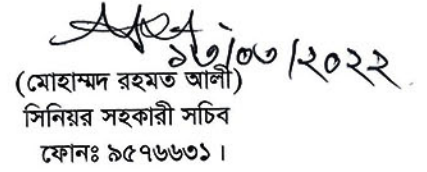 ১৩/০৩/২০২২
(মোহাম্মদ রহমত আলী)
সিনিয়র সহকারী সচিব
ফোনঃ ৯৫৭৬৬৩১।